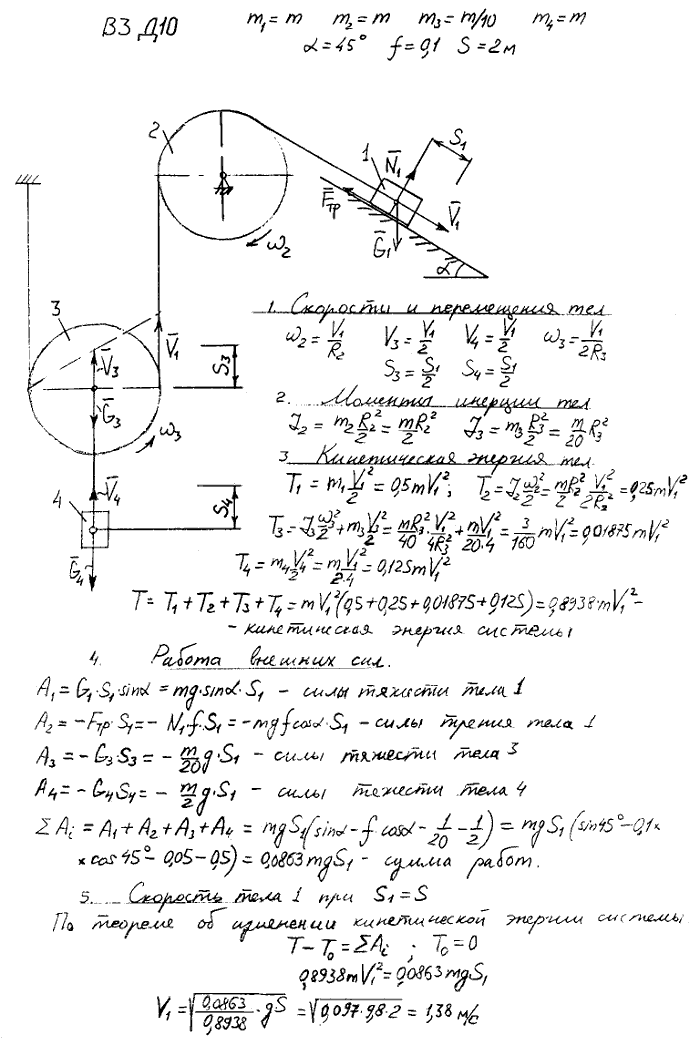 ВЗ Д10
m₁ = m m₂ = m m₃ = m/10 m₄ = m
α = 45° f = 0,1 S = 2 м
2
1
N̄₁
S₁
F̄тр
V̄₁
Ḡ₁
α
ω₂
3
V̄₁
V̄₃
S₃
Ḡ₃
ω₃
V̄₄
4
S₄
Ḡ₄
1. Скорости и перемещения тел
ω₂ = V₁/R₂ V₃ = V₁/2 V₄ = V₁/2 ω₃ = V₁/2R₃
S₃ = S₁/2 S₄ = S₁/2
2. Моменты инерции тел
J₂ = m₂ R₂²/2 = mR₂²/2 J₃ = m₃ R₃²/2 = m/20 R₃²
3. Кинетическая энергия тел
T₁ = m₁ V₁²/2 = 0,5mV₁²; T₂ = J₂ ω₂²/2 = mR₂²/2 · V₁²/2R₂² = 0,25mV₁²
T₃ = J₃ ω₃²/2 + m₃ V₃²/2 = mR₃²/40 · V₁²/4R₃² + mV₁²/20·4 = 3/160 mV₁² = 0,01875mV₁²
T₄ = m₄ V₄²/2 = m V₁²/2·4 = 0,125mV₁²
T = T₁ + T₂ + T₃ + T₄ = mV₁²(0,5+0,25+0,01875+0,125) = 0,8938·mV₁² -
- кинетическая энергия системы
4. Работа внешних сил.
A₁ = G₁·S₁·sinα = mg·sinα·S₁ - силы тяжести тела 1
A₂ = -Fтр·S₁ = - N₁·f·S₁ = -mgfcosα·S₁ - силы трения тела 1
A₃ = - G₃·S₃ = - m/20 g·S₁ - силы тяжести тела 3
A₄ = - G₄S₄ = - m/2 g·S₁ - силы тяжести тела 4
ΣAi = A₁ + A₂ + A₃ + A₄ = mgS₁(sinα - f·cosα - 1/20 - 1/2) = mgS₁(sin45° - 0,1×
×cos45° - 0,05 - 0,5) = 0,0863mgS₁ - сумма работ.
5. Скорость тела 1 при S₁ = S
По теореме об изменении кинетической энергии системы:
T - T₀ = ΣAi ; T₀ = 0
0,8938mV₁² = 0,0863mgS₁
V₁ = √(0,0863/0,8938 · gS) = √(0,097·9,8·2) = 1,38 м/с